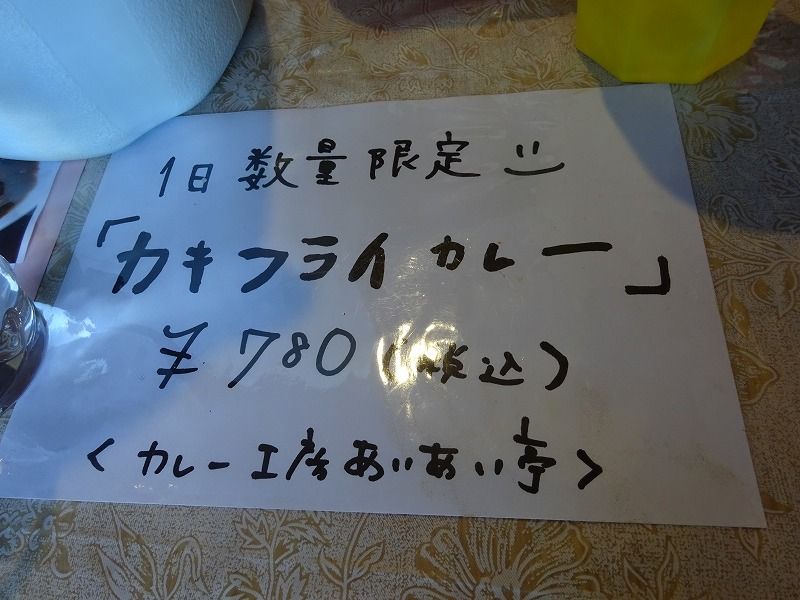 1日 数量 限定
「カキフライ カレー」
¥780(税込)
<カレー工房あいあい亭>